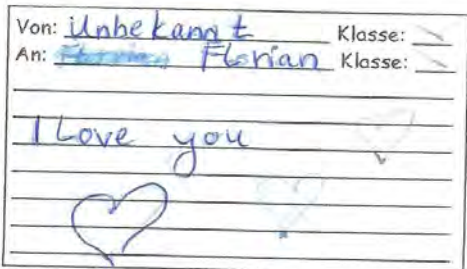 Von: Unbekannt Klasse:
An: Florian Klasse:
I Love you